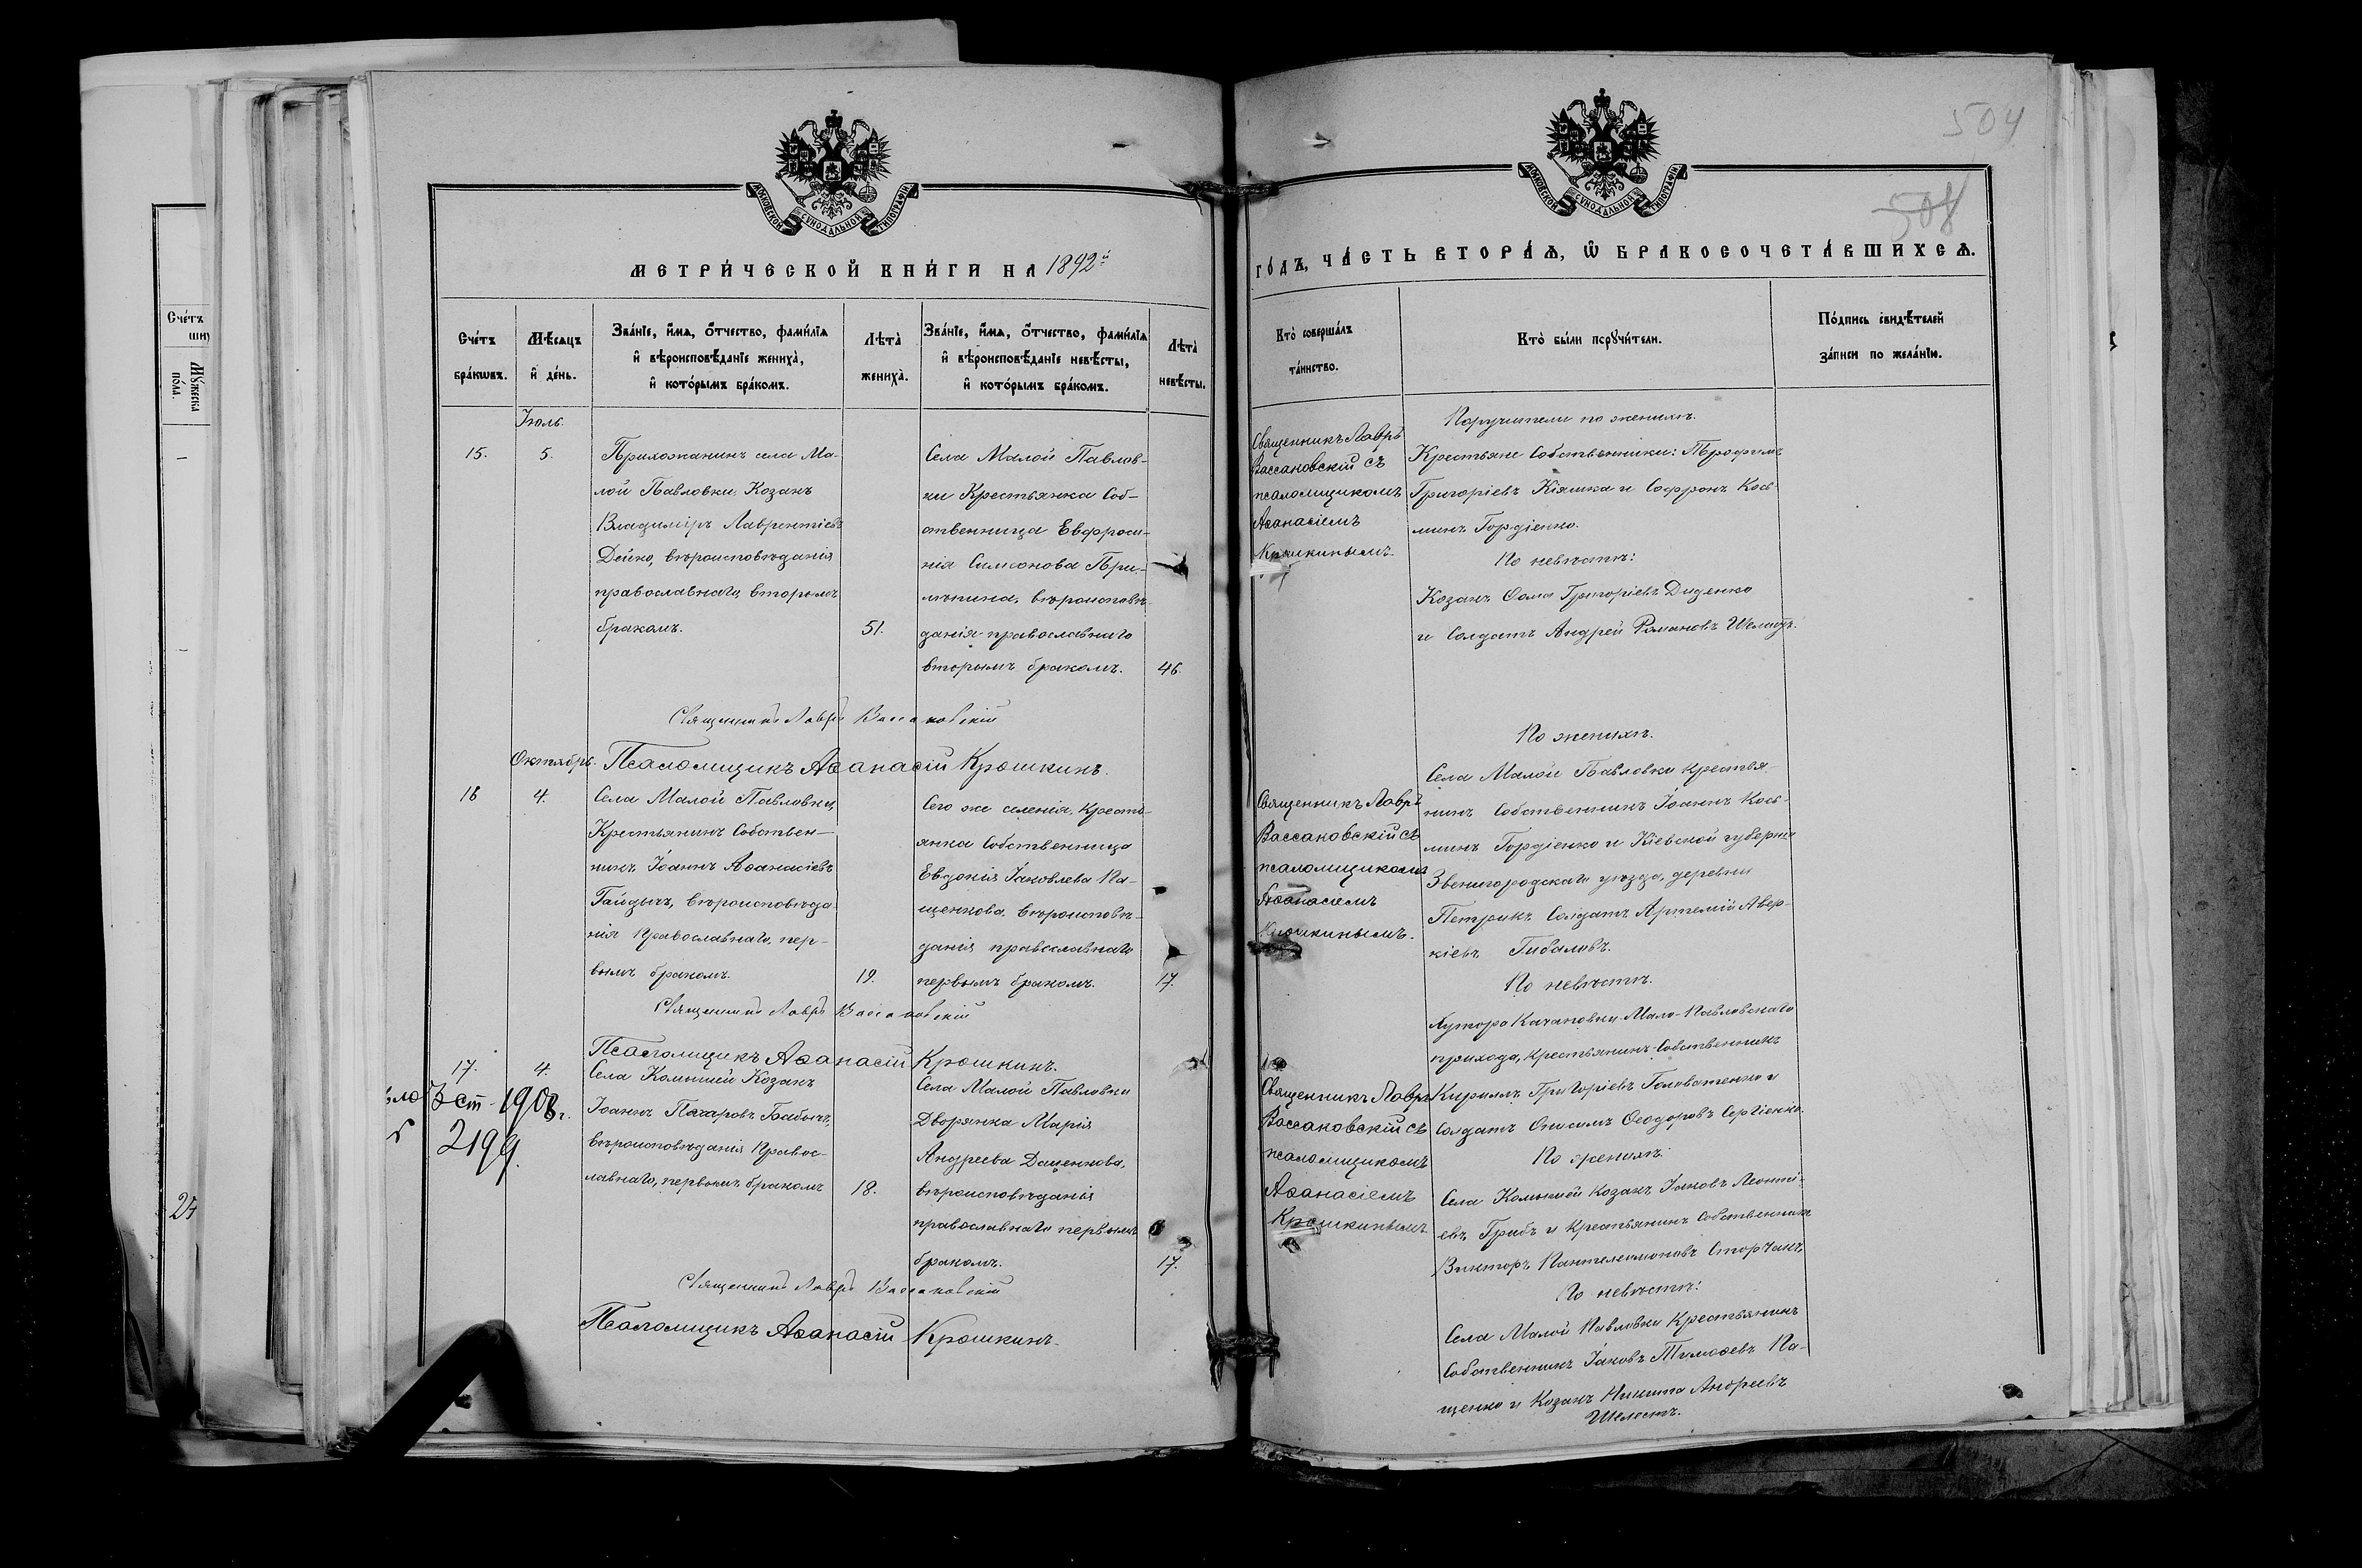 504
508
МОСКОВСКОЙ СУНОДАЛЬНОЙ ТИПОГРАФІИ
МОСКОВСКОЙ СУНОДАЛЬНОЙ ТИПОГРАФІИ
МЕТРИ́ЧЕСКОЙ КНИ́ГИ НА 1892й
ГО́ДЪ, ЧА́СТЬ ВТОРА́Ѧ, Ѡ҆ БРАКОСОЧЕТА́ВШИХСѦ.
Сче́тъ бра́кѡвъ.
Мѣ́сѧцъ и҆ де́нь.
Зва́нїе, и҆́мѧ, ѻ҆́тчество, фами́лїѧ и҆ вѣроисповѣ́данїе жениха̀, и҆ кото́рымъ бра́комъ.
Лѣта̀ жениха̀.
Зва́нїе, и҆́мѧ, ѻ҆́тчество, фами́лїѧ и҆ вѣроисповѣ́данїе невѣ́сты, и҆ кото́рымъ бра́комъ.
Лѣта̀ невѣ́сты.
Кто̀ соверша́лъ та́инство.
Кто̀ бы́ли порꙋчи́тели.
По́дпись свидѣ́телей за́писи по жела́нїю.
Сче́тъ
Мꙋ́жеска по́ла.
25
Іюль.
15.
5.
Прихожанинъ села Ма-
лой Павловки, Козакъ
Владиміръ Лаврентіевъ
Дейко, вѣроисповѣданія
православнаго, вторымъ
бракомъ.
51.
Села Малой Павлов-
ки Крестьянка Соб-
ственница Евфроси-
нія Симеонова При-
вѣроисповѣ-
данія православнаго
вторымъ бракомъ.
46.
Священникъ Лавръ
Вассаковскій съ
псаломщикомъ
Аѳанасіемъ
Крошкинымъ.
Поручители по женихѣ.
Крестьяне Собственники: Трофимъ
Григоріевъ Кіяшка и Софронъ Кось-
минъ Гордіенко.
По невѣстѣ:
Козакъ Ѳома Григоріевъ Диденко
и Солдатъ Андрей Романовъ
Священникъ Лавръ Вассаковскій
Псаломщикъ Аѳанасій Крошкинъ.
Октябрь.
16
4.
Села Малой Павловки,
Крестьянинъ Собствен-
никъ Іоаннъ Аѳанасіевъ
Гайдычъ, вѣроисповѣда-
нія Православнаго, пер-
вымъ бракомъ.
19.
Сего же селенія, Кресть-
янка Собственница
Евдокія Іаковлева Па-
щенкова, вѣроисповѣ-
данія православнаго
первымъ бракомъ.
17.
Священникъ Лавръ
Вассаковскій съ
псаломщикомъ
Аѳанасіемъ
Крошкинымъ.
По женихѣ.
Села Малой Павловки крестья-
нинъ Собственникъ Іоаннъ Кось-
минъ Гордіенко и Кіевской губерніи
Звенигородскаго уѣзда, деревни
Петрикъ Солдатъ Артемій Авер-
кіевъ
По невѣстѣ.
Хутора Качановки Мало-Павловскаго
прихода, крестьянинъ-Собственникъ
Кириллъ Григоріевъ Головатенко и
Солдатъ Онисимъ Ѳеодоровъ Сергіенко.
Священникъ Лавръ Вассаковскій
Псаломщикъ Аѳанасій Крошкинъ.
17.
4.
Села Комышей Козакъ
Іоаннъ Бабычъ,
вѣроисповѣданія Правос-
лавнаго, первымъ бракомъ
18.
Села Малой Павловки
Дворянка Марія
Андреева Даценкова,
вѣроисповѣданія
православнаго первымъ
бракомъ.
17.
3 ст 1908 г.
2199.
Священникъ Лавръ
Вассаковскій съ
псаломщикомъ
Аѳанасіемъ
Крошкинымъ
По женихѣ.
Села Комышей Козакъ Іаковъ Леонті-
евъ Грибъ и Крестьянинъ Собственникъ
Викторъ Пантелеимоновъ Сторчакъ,
По невѣстѣ:
Села Малой Павловки Крестьянинъ
Собственникъ Іаковъ Тимоѳеевъ Па-
щенко и Козакъ Никита Андреевъ
Шелестъ.
Священникъ Лавръ Вассаковскій
Псаломщикъ Аѳанасій Крошкинъ.